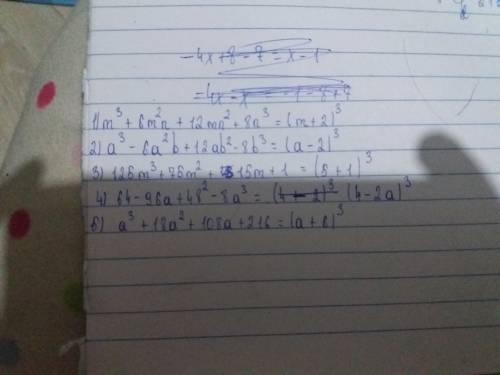 -4x+8-7=x-1
=4x-x=-1-8+7
1) m³+6m²n+12mn²+8n³=(m+2)³
2) a³-6a²b+12ab²-8b³=(a-2)³
3) 125m³+75m²+15m+1=(5+1)³
4) 64-96a+48²-8a³=(4-2)³ (4-2a)³
5) a³+18a²+108a+216=(a+6)³